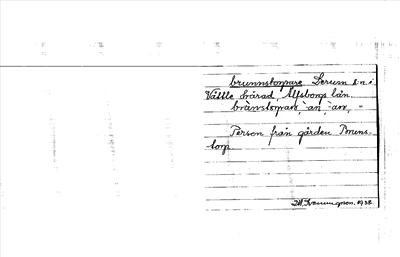 brunnstorpare Lerum s:n i
Vättle härad Älfsborgs län.
brunstorpare, -an, -ar, "
Person från gården Bruns-
torp
1938.